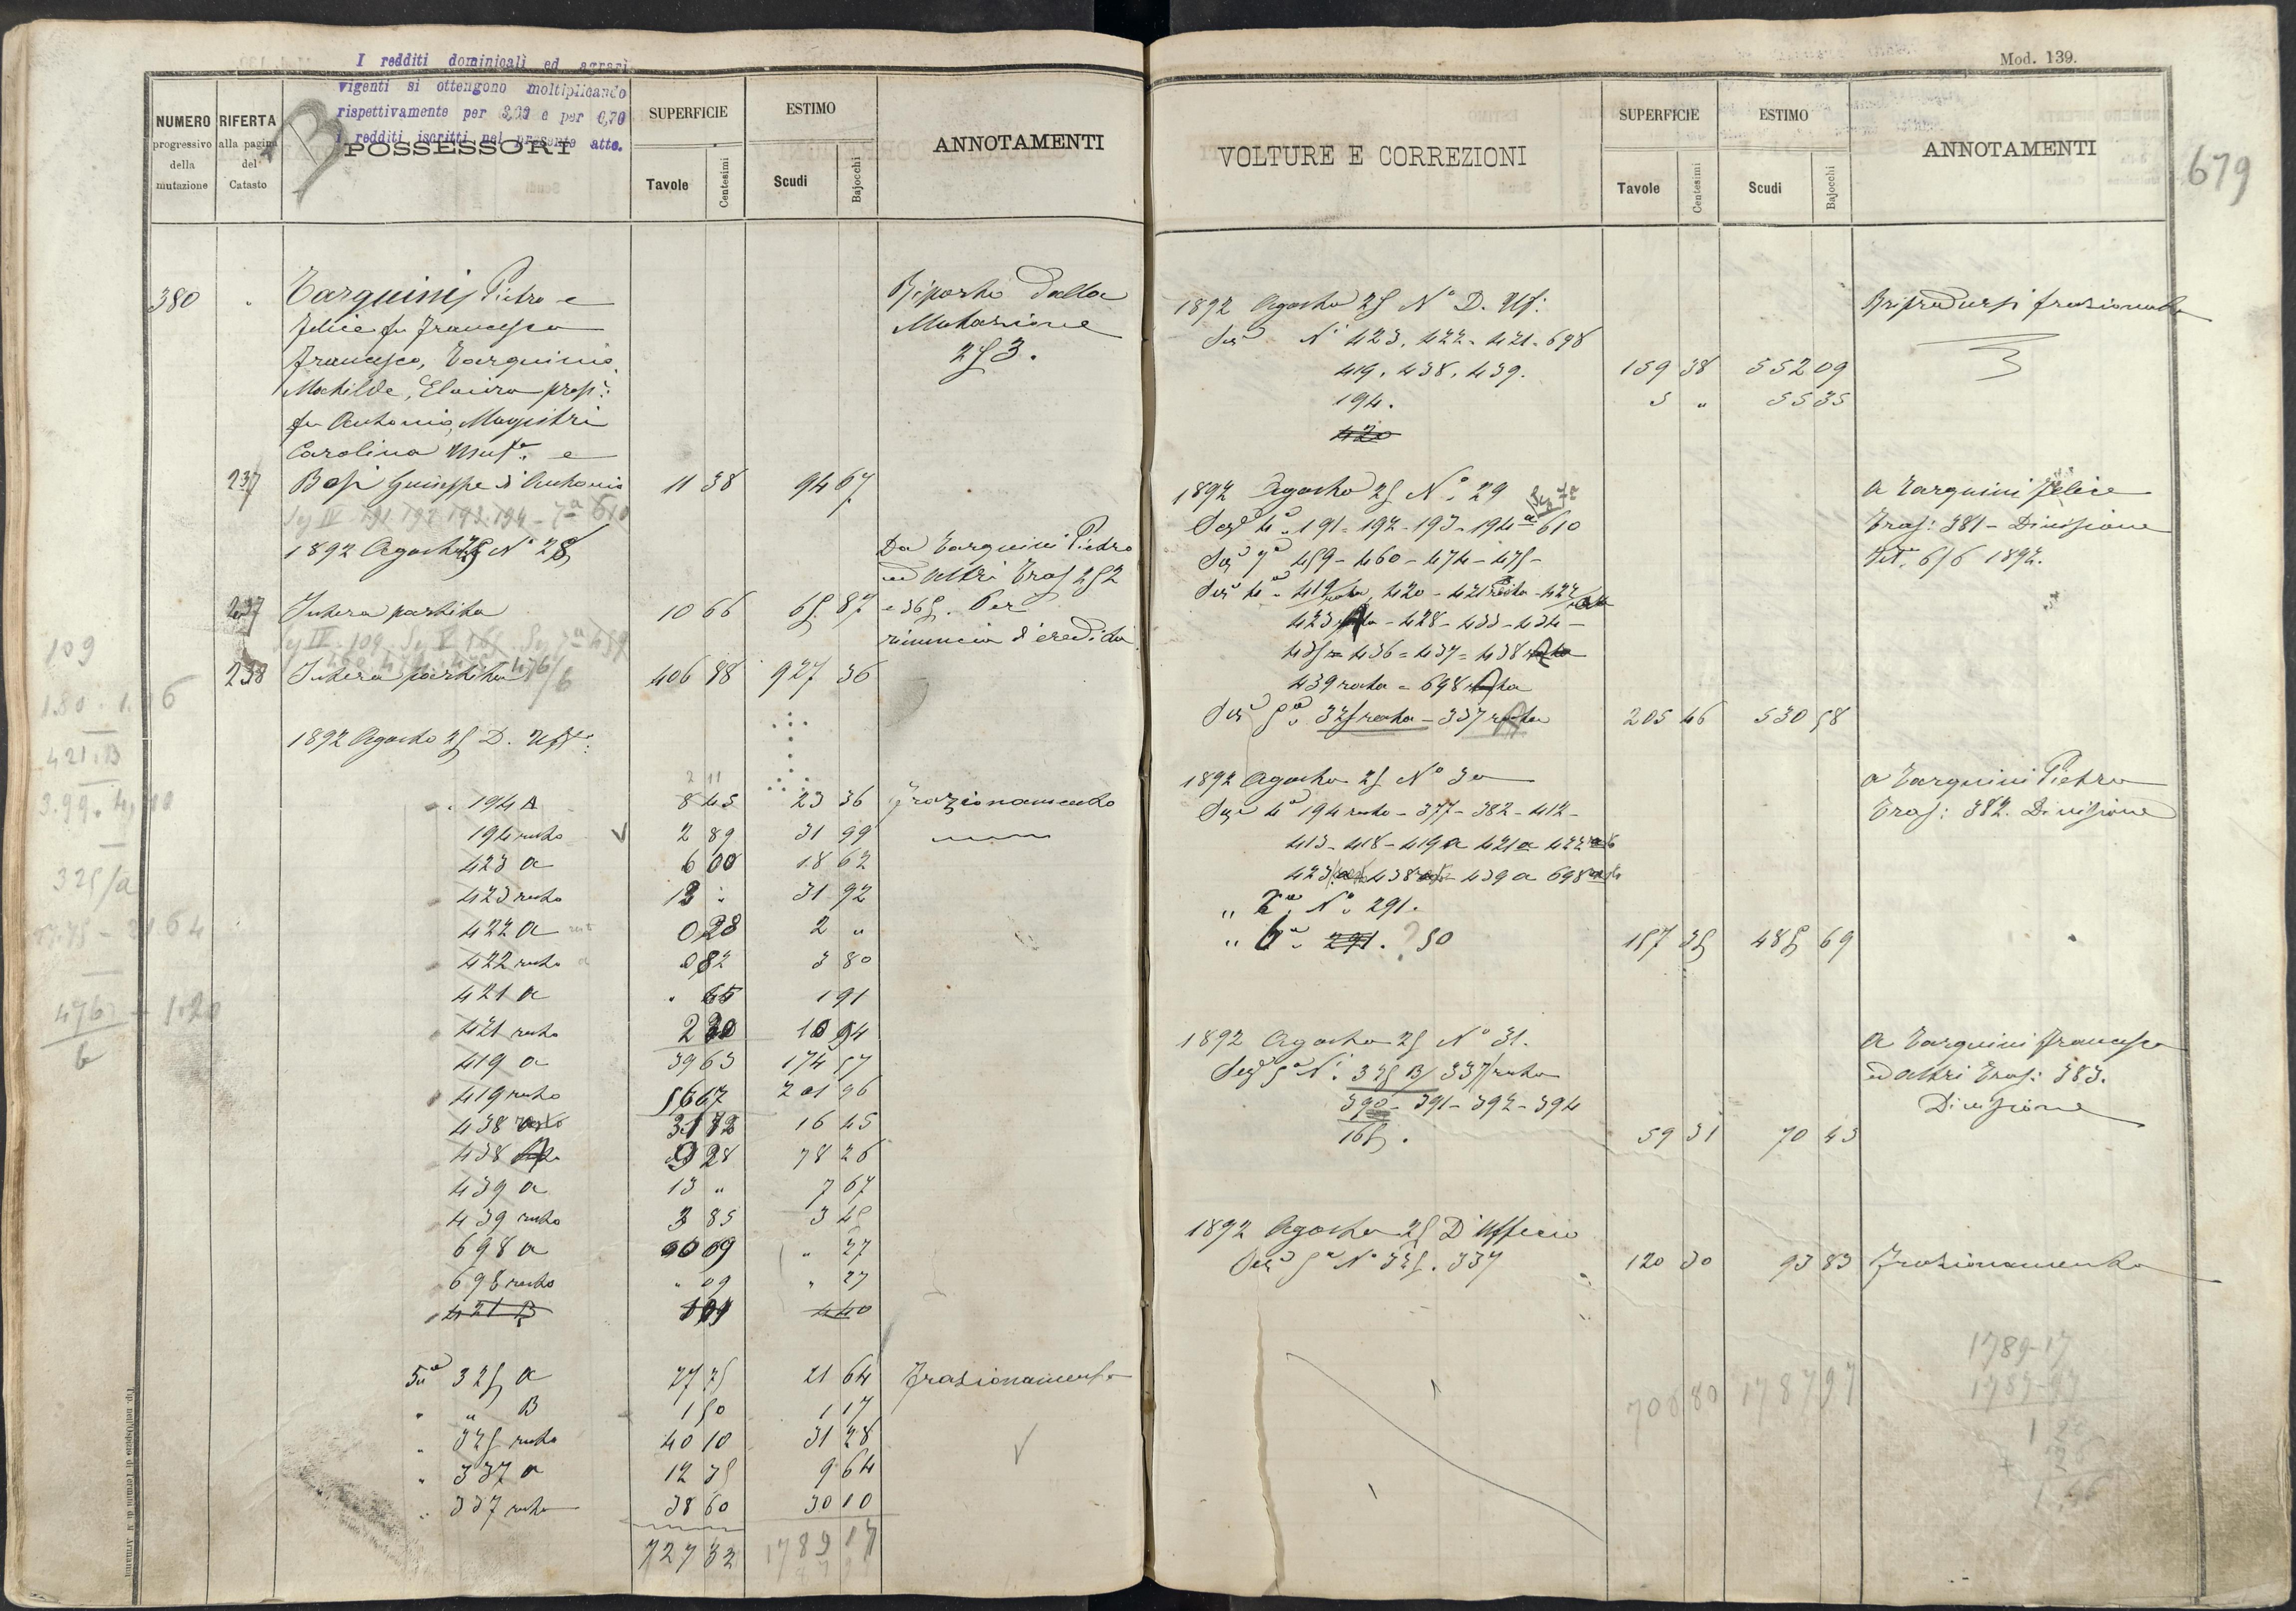 I redditi dominicali ed agrari
vigenti si ottengono moltiplicando
rispettivamente per e per
i redditi iscritti nel presente atto.
B
NUMERO
progressivo
della
mutazione
RIFERTA
alla pagina
del
Catasto
POSSESSORI
SUPERFICIE
Tavole
Centesimi
ESTIMO
Scudi
Bajocchi
ANNOTAMENTI
380 Tarquini Pietro e
Felice fu Francesco
Francesco, Tarquinio
Matilde, Elvira prop:
fu Antonio, Magistri
Carolina Usuf. e
Riporto dalla
Mutazione
253.
237 Bosi Giuseppe d'Antonio 11 38 94 67
Sez IV 191 192 193 194 - 7a 610
1892 Agosto 25 N° 28
Da Tarquini Pietro
ed altri Tras 252
e 365. Per
rinuncia d'eredità
237 Intera partita 10 66 65 87
238 Intera partita 406 88 927 36
1892 Agosto 25 D. Uff:
194 A 8 45 23 36 Frazionamento
194 resto 2 89 31 99
423 a 6 00 18 62
423 resto 13 " 31 92
422 a 0 28 2 "
422 resto 0 82 3 80
421 a " 65 1 91
421 resto 2 30 10 54
419 a 39 63 174 57
419 resto 56 67 201 96
438 31 72 16 45
438 9 28 78 26
439 a 13 " 7 67
439 resto 3 85 3 45
698 a 00 09 " 27
698 resto " 09 " 27
421 B 4 40
5a 325 a 27 75 21 64 Frazionamento
" " B 1 50 1 17
" 325 resto 40 10 31 28
" 337 a 12 35 9 64
" 337 resto 38 60 30 10
727 32 1789 17
109
421.B
325/a
476
b
1.20
Tip. nell'Ospizio di Termini di N. Armanni
Mod. 139.
679
VOLTURE E CORREZIONI
SUPERFICIE
Tavole
Centesimi
ESTIMO
Scudi
Bajocchi
ANNOTAMENTI
1892 Agosto 25 N° D. Uff:
Sez N° 423. 422. 421. 698
419. 438. 439. 159 38 552 09
194. 5 " 55 35
420
Riprodursi frazionato
1892 Agosto 25 N° 29
Sez 4a 191 - 192 - 193 - 194 a 610
Sez 7a 459 - 460 - 474 - 475 -
Sez 4a 419 resto, 420 - 421 resto - 422
423 - 428 - 433 - 434 -
435 = 436 = 437 = 438
439 resto = 698
Sez 5a 325 resto - 337 resto 205 46 530 58
a Tarquini Felice
Tras: 381 - Divisione
1892.
1892 Agosto 25 N° 30
Sez 4a 194 resto - 377 - 382 - 412 -
413 - 418 - 419 a 421 a 422
423 438 439 a 698
" N° 291.
" 6a 291. ? 50 157 35 485 69
a Tarquini Pietro
Tras: 382. Divisione
1892 Agosto 25 N° 31.
Sez 5a N° 325 B/ 337/resto
390 - 391 - 392 - 394
165. 59 31 70 43
a Tarquini Francesco
ed altri Tras: 383.
Divisione
1892 Agosto 25 D'Ufficio
Sez 5a N° 325. 337 120 30 93 83 Frazionamento
708 80 1787 97
1789-17
1787-97
1 20